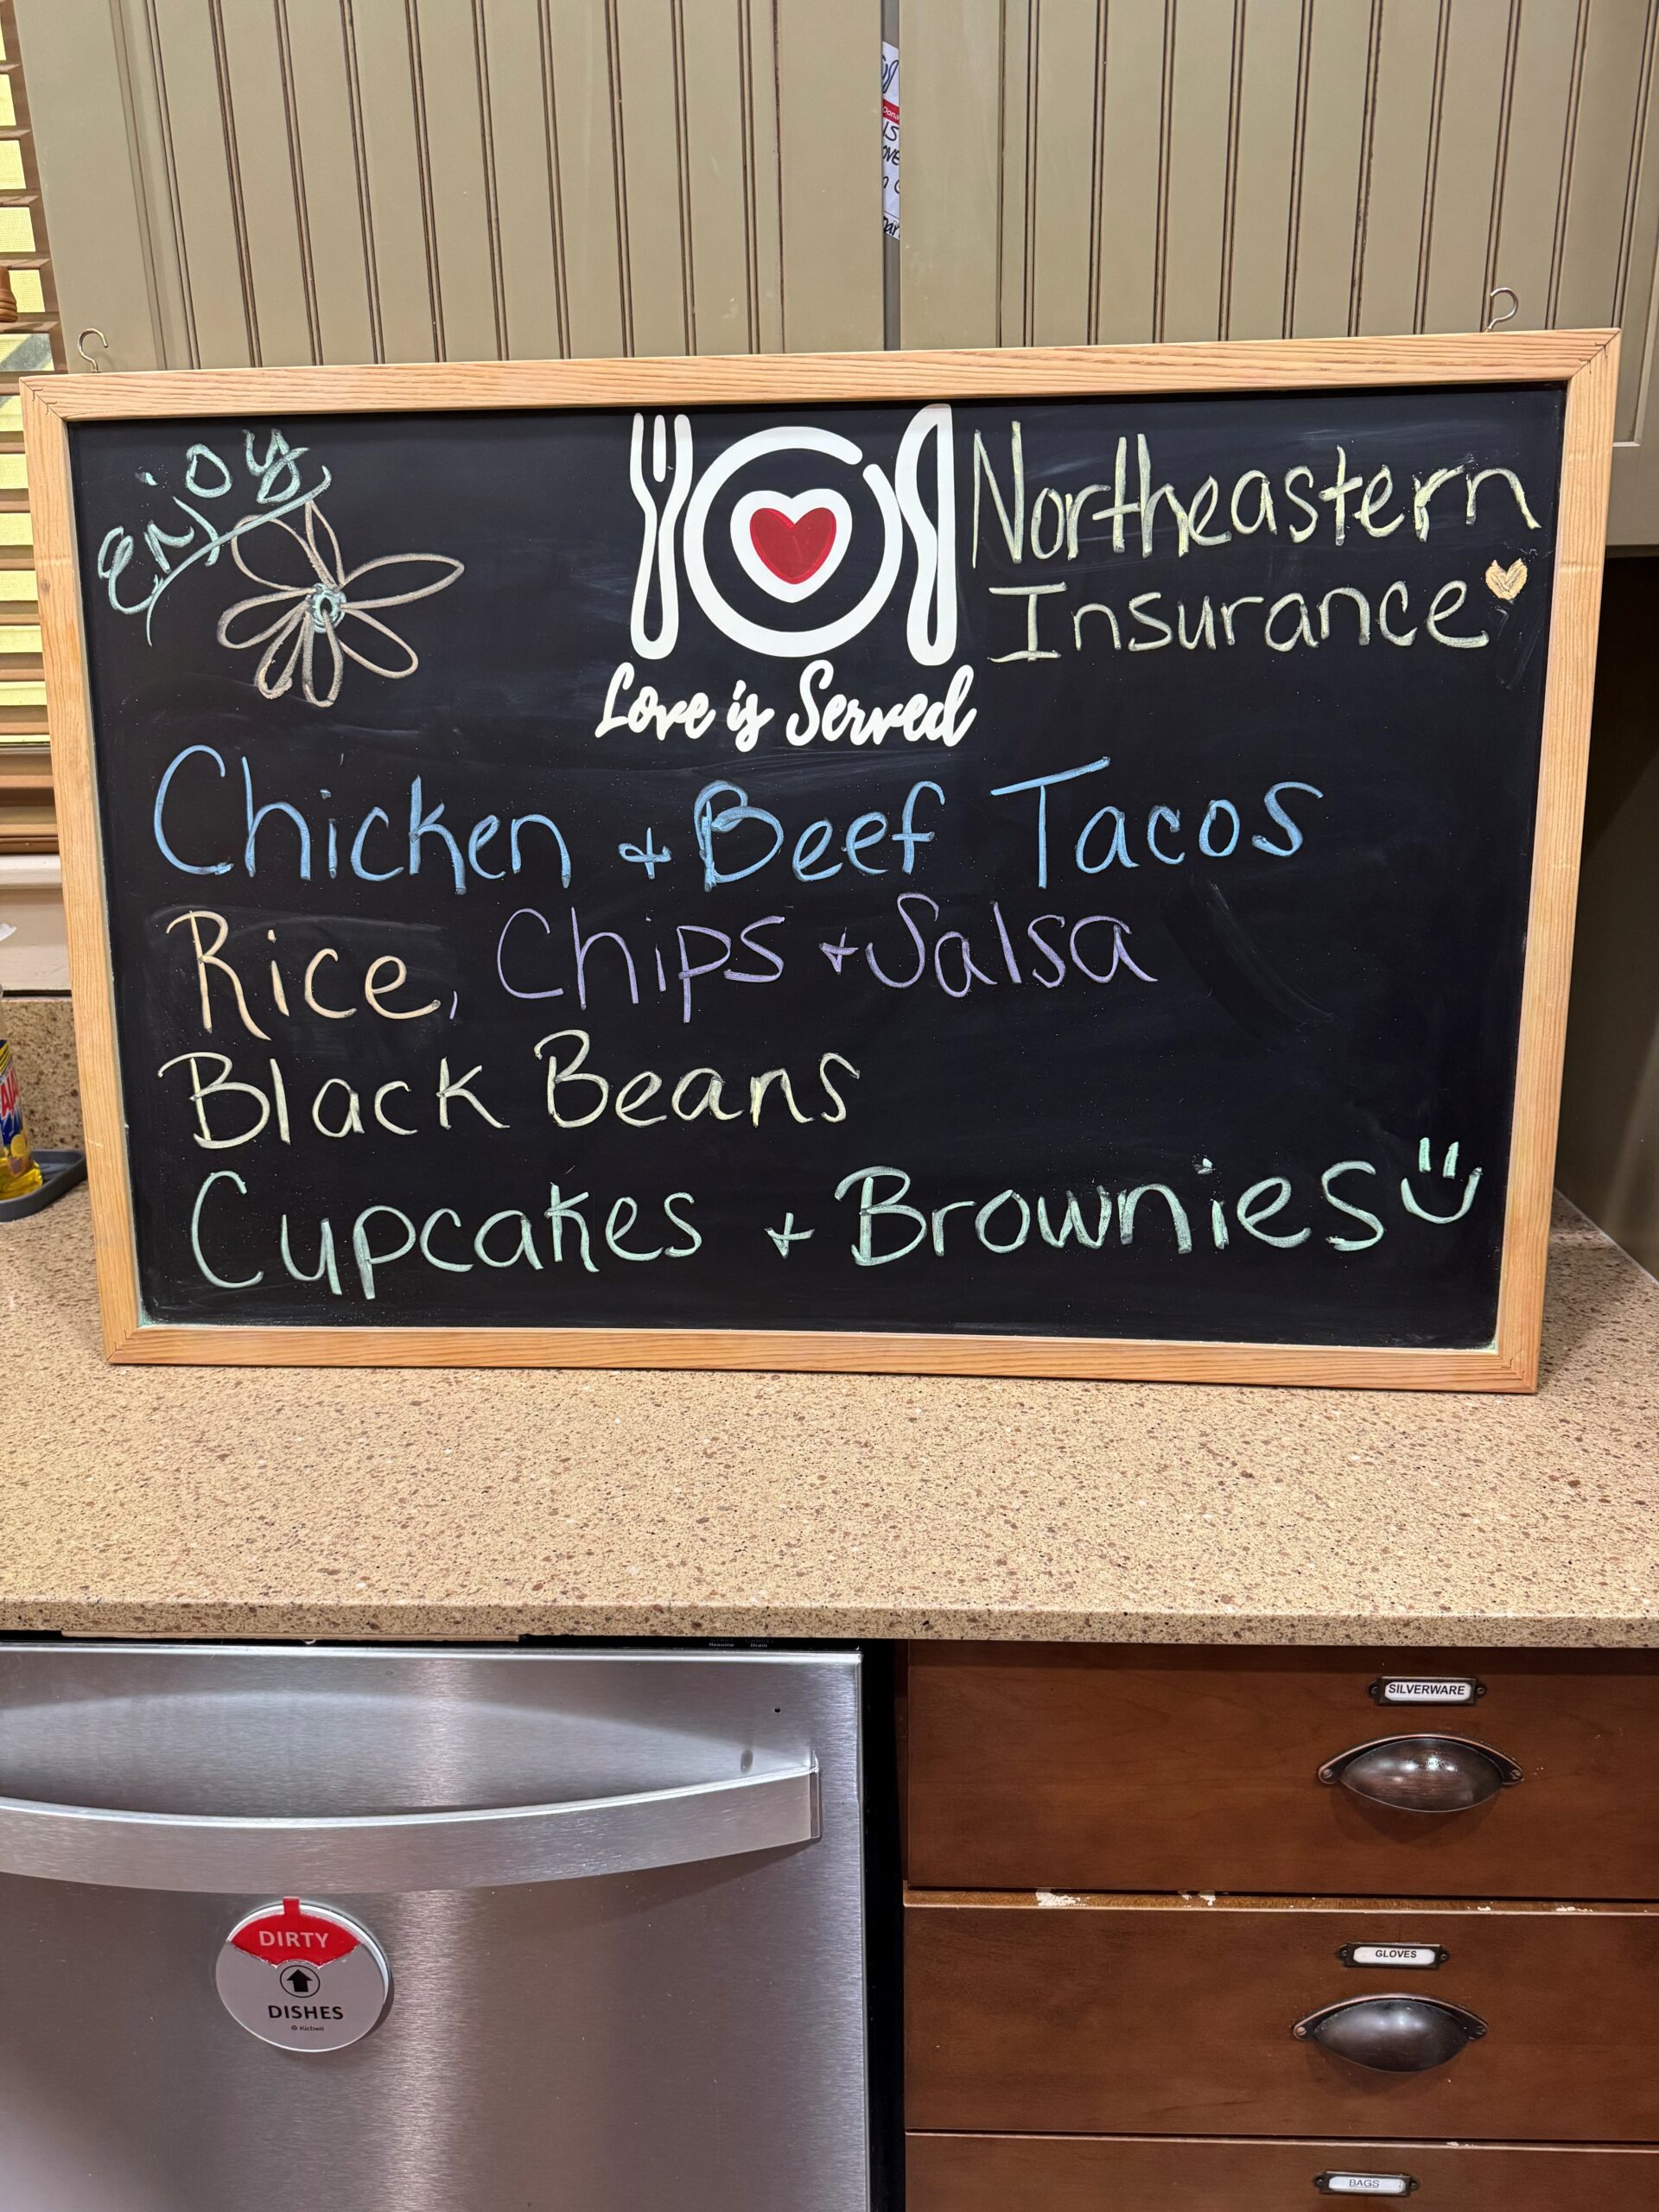 Enjoy
Northeastern
Insurance
Love is Served
Chicken + Beef Tacos
Rice, Chips + Salsa
Black Beans
Cupcakes + Brownies
SILVERWARE
GLOVES
BAGS
DIRTY
DISHES
Kichwit